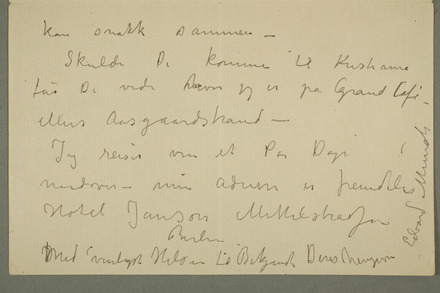 kan snakk sammen –
Skulde De komme til Kristiania
får De vide hvor jeg er på Grand Café
ellers Aasgaardstrand –
Jeg reiser om et Par Dage
nordover – min adresse er fremdeles
Hotel Janson Mittelstrasse
Berlin
Med venligst Hilsen til Bekjendte Deres hengivne
Edvard Munch